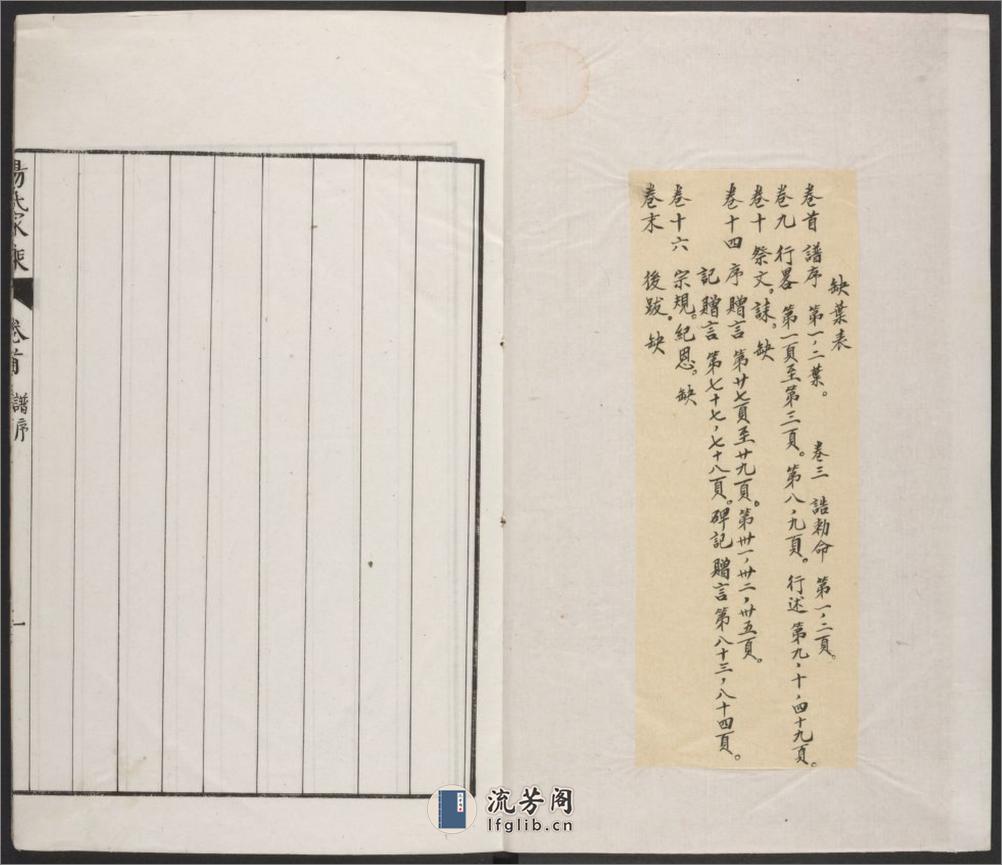 缺葉表
卷首 譜序 第一,二葉。 卷三 誥勅命 第一,二頁。
卷九 行畧 第一頁至第三頁。第八,九頁。行述 第九,十,四十九頁。
卷十 祭文。誄。缺
卷十四 序 贈言 第廿七頁至廿九頁。第卅一,卅二,卅五頁。
記 贈言 第七十七,七十八頁。碑記 贈言 第八十三,八十四頁。
卷十六 宗規。紀恩。缺
卷末 後跋。缺
氏家乘 卷首 譜序 一
流芳阁
lfglib.cn